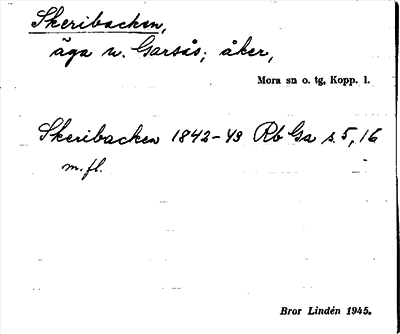 Skeribacken,
äga n. Garsås; åker,
Mora sn o. tg, Kopp. l.
Skeribacken 1842-43 Rb Ga s. 5, 16
m. fl.
Bror Lindén 1945.